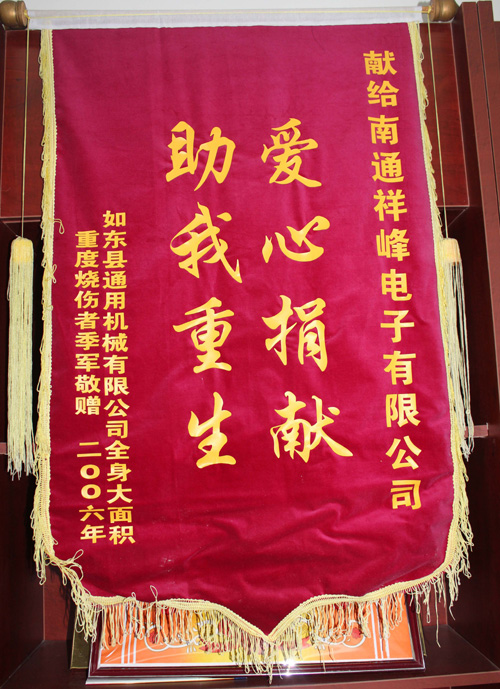 献给南通祥峰电子有限公司
爱心捐献
助我重生
如东县通用机械有限公司全身大面积
重度烧伤者季军敬赠 二00六年